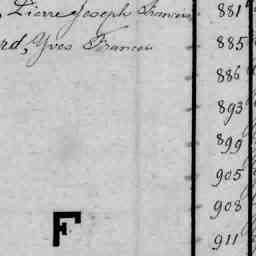 Pierre Joseph Francois 881
rd, Yves Francois 885
886
893
899
905
908
F 911